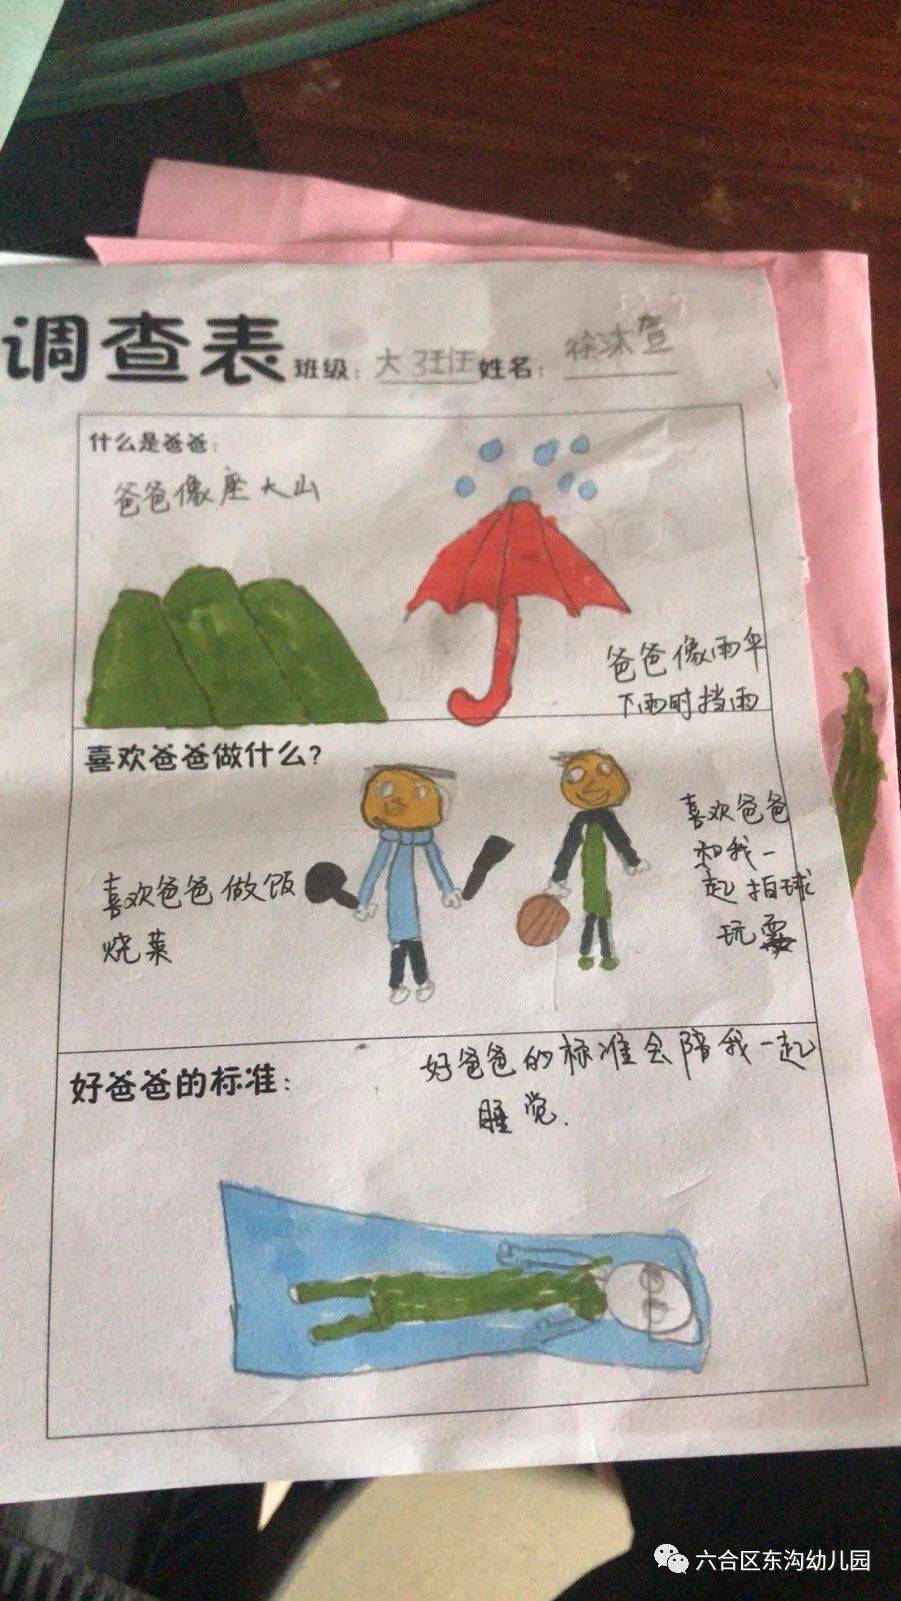 调查表 班级：大班 姓名：徐沐萱
什么是爸爸：
爸爸像座大山
爸爸像雨伞
下雨时挡雨
喜欢爸爸做什么？
喜欢爸爸做饭
烧菜
喜欢爸爸
和我一
起拍球
玩耍
好爸爸的标准：
好爸爸的标准会陪我一起
睡觉.
六合区东沟幼儿园